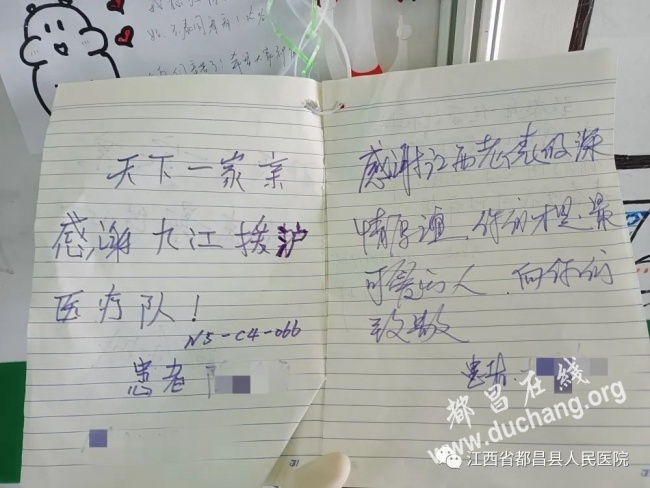 天下一家亲
感谢九江援沪
医疗队！
N5-C4-066
患者
感谢江西老表的深
情厚谊，你们才是最
可爱的人，向你们
致敬
患者
都昌在线
www.duchang.org
江西省都昌县人民医院